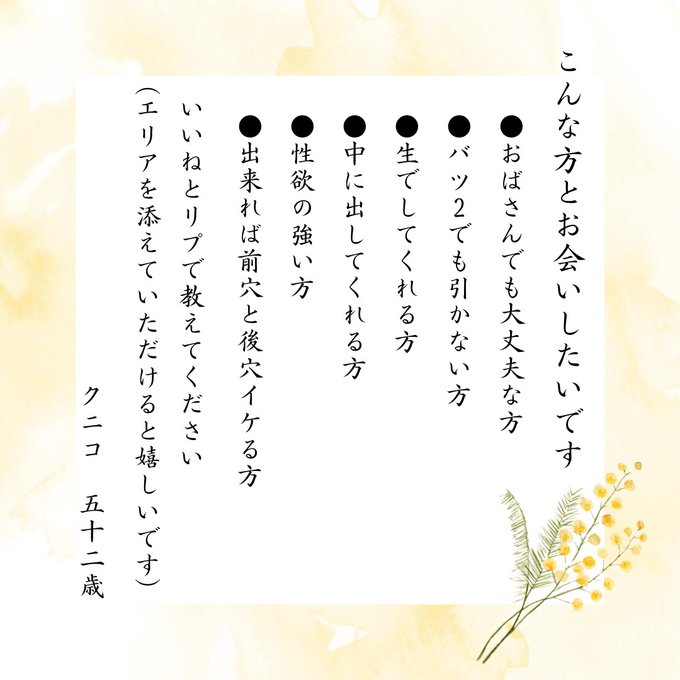 こんな方とお会いしたいです
●おばさんでも大丈夫な方
●バツ2でも引かない方
●生でしてくれる方
●中に出してくれる方
●性欲の強い方
●出来れば前穴と後穴イケる方
いいねとリプで教えてください
(エリアを添えていただけると嬉しいです)
クニコ 五十二歳